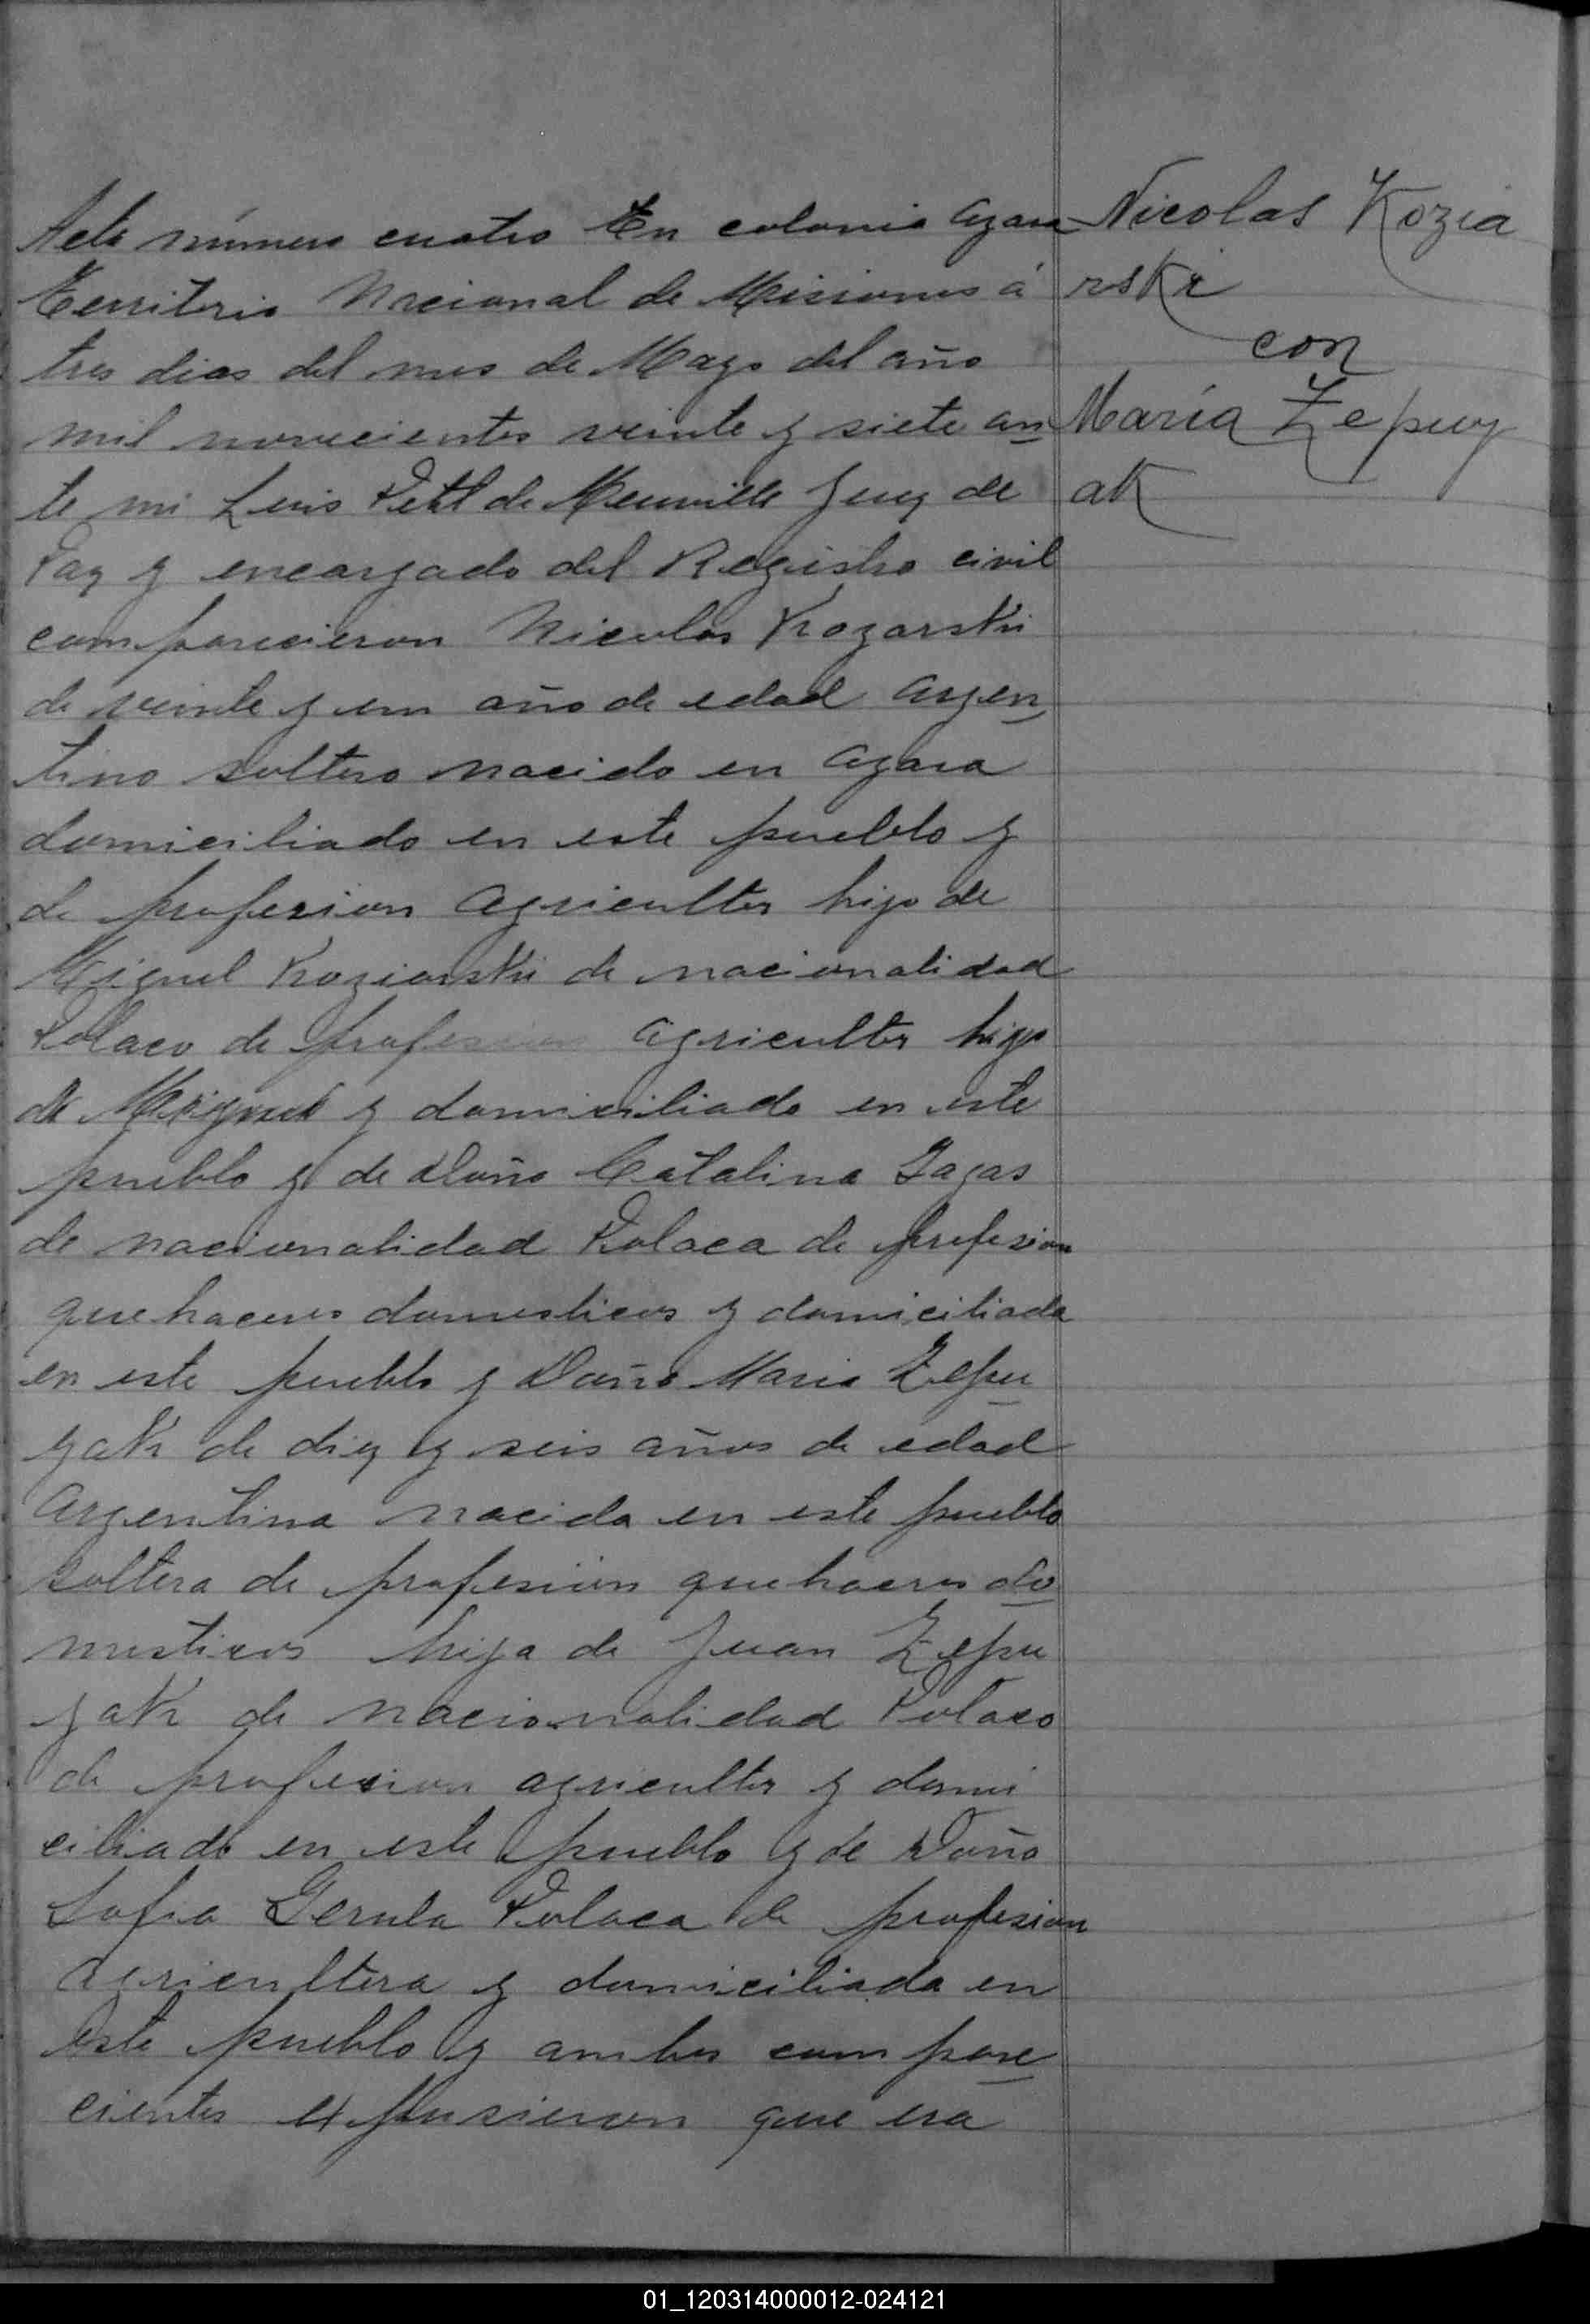 Acta número cuatro En colonia Azara
Territorio Nacional de Misiones á
tres dias del mes de Mayo del año
mil novecientos veinte y siete an
te mi Luis de Juez de
Paz y encargado del Registro civil
comparecieron Nicolas Kozarski
de veinte y un año de edad argen
tino soltero nacido en Azara
domiciliado en este pueblo y
de profesion agricultor hijo de
Miguel Koziarski de nacionalidad
Polaco de profesion agricultor hijo
de Miguel y domiciliado en este
pueblo y de doña Catalina Zagas
de nacionalidad Polaca de profesion
quehaceres domesticos y domiciliada
en este pueblo y Doña Maria Zepu
yak de diez y seis años de edad
Argentina nacida en este pueblo
soltera de profesion quehaceres do
mesticos hija de Juan Zepu
yak de nacionalidad Polaco
de profesion agricultor y domi
ciliado en este pueblo y de Doña
Sofia Gerula Polaca de profesion
agricultora y domiciliada en
este pueblo y ambos compare
cientes expusieron que era
Nicolas Kozia
rski
con
María Zepuy
ak
01_120314000012-024121